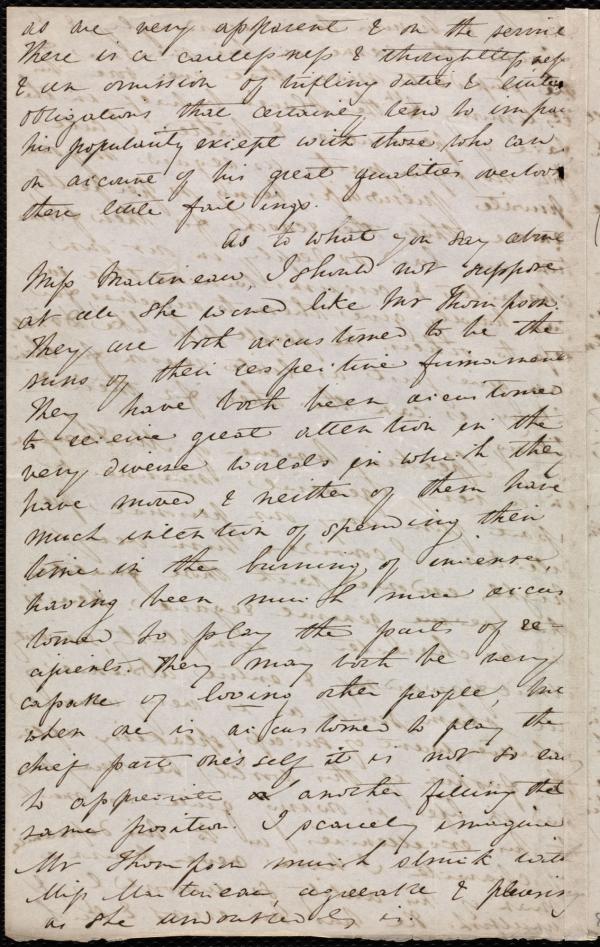 as are very apparent & on the
There is a carelessness & thoughtlessness
& an omission of trifling duties & little
obligations that certainly tend to impair
his popularity except with those who can
on account of his great qualities overlook
these little failings.
As to what you say about
Miss Martineau, I should not suppose
at all she would like Mr Thompson.
They are both accustomed to be the
suns of their respective firmaments
They have both been accustomed
to receive great attention in the
very diverse worlds in which they
have moved, & neither of them have
much intention of spending their
time in the burning of incense,
having been much more accus
tomed to play the parts of re-
cipients. They may both be very
capable of loving other people, but
when one is accustomed to play the
chief part one's self it is not so easy
to appreciate another filling the
same position. I scarcely imagine
Mr Thompson much struck with
Miss Martineau, agreeable & pleasing
as she undoubtedly is.